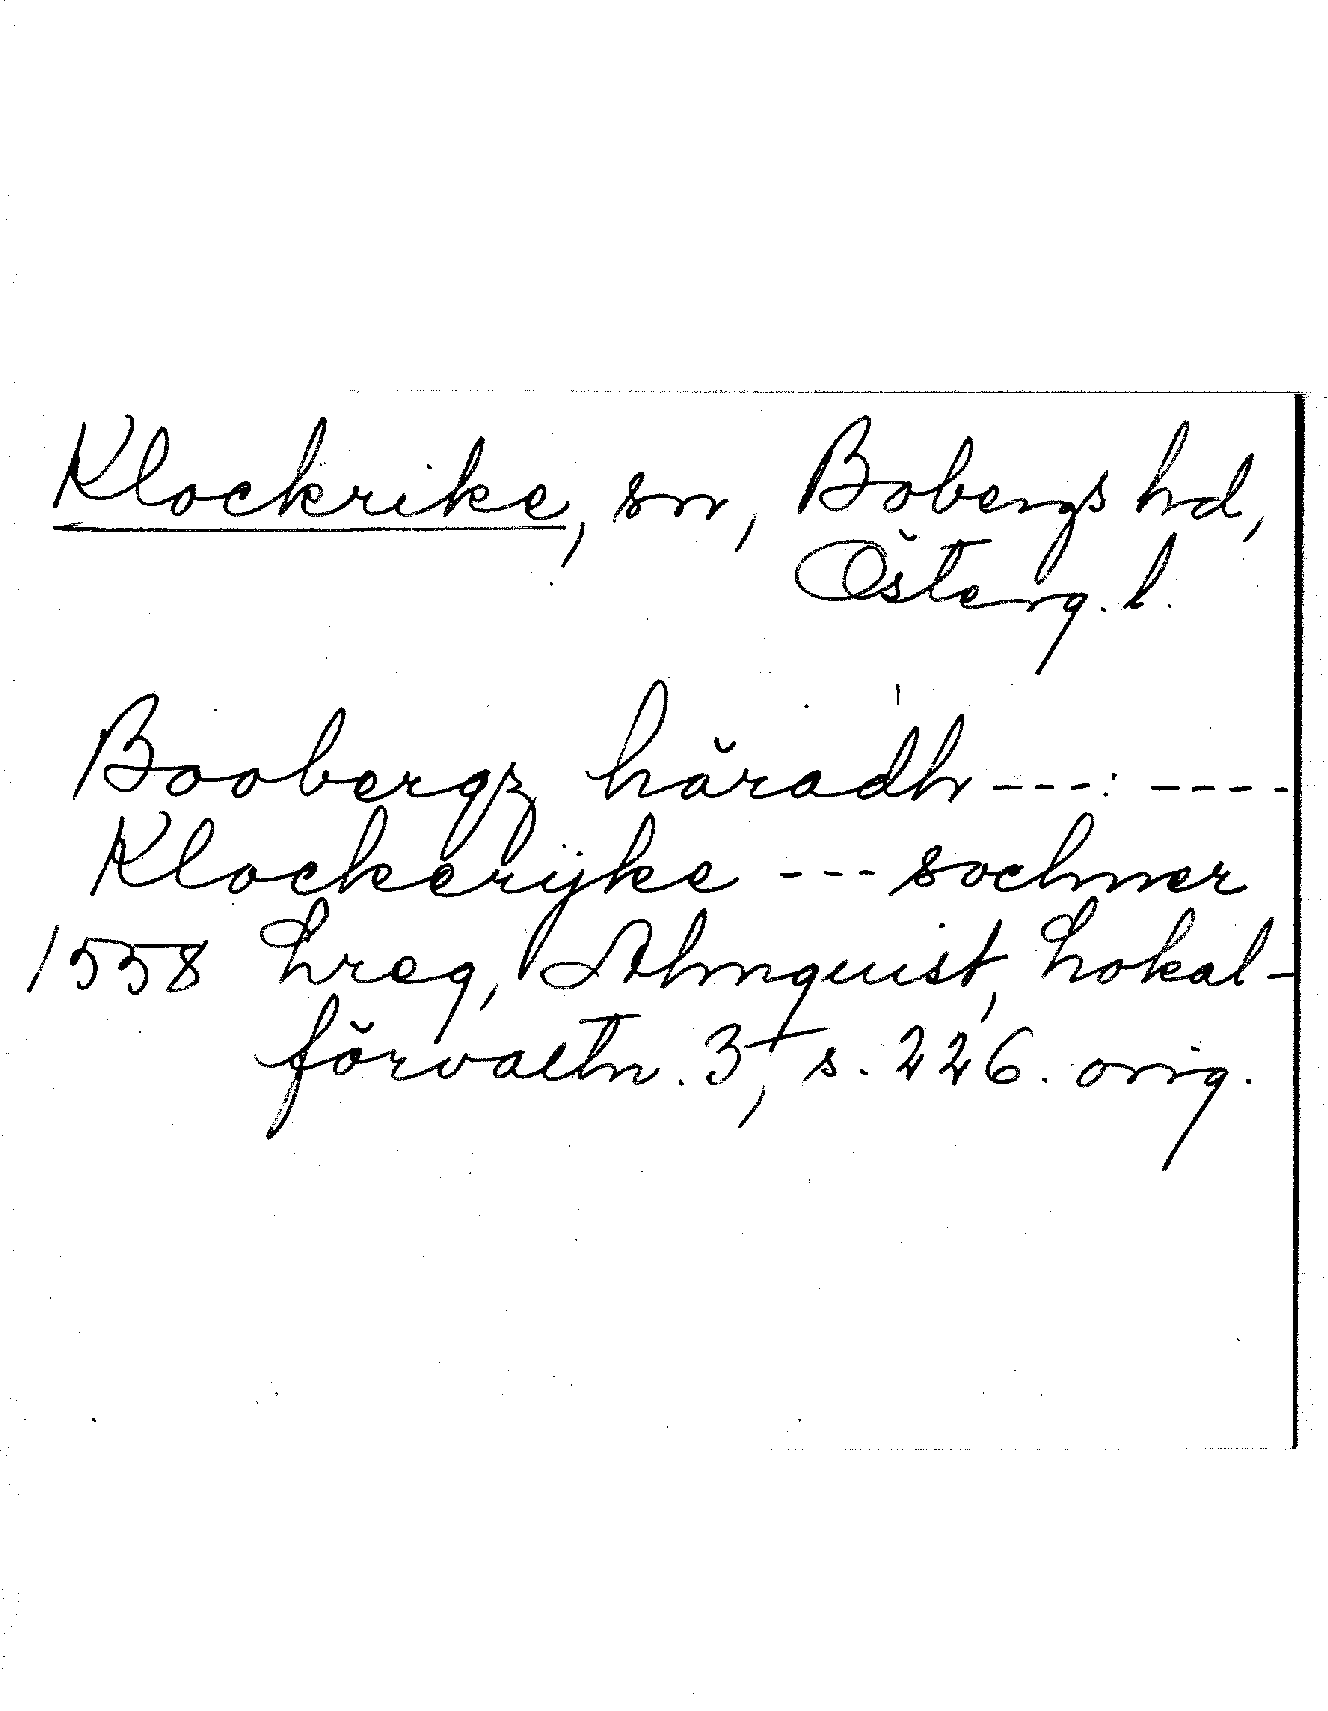 Klockrike, sn, Bobergs hd,
Österg. l.
Boobergz häradh ---: ----
Klockerÿke --- sochner
1558 Lreg, Almquist, Lokal-
förvaltn. 3, s. 226. orig.